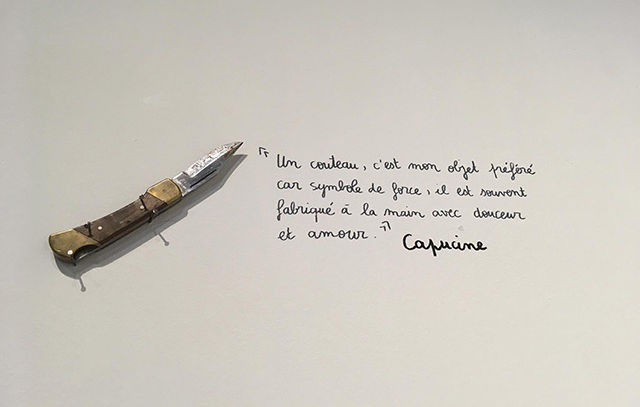 "Un couteau, c'est mon objet préféré
car symbole de force, il est souvent
fabriqué à la main avec douceur
et amour."
Capucine